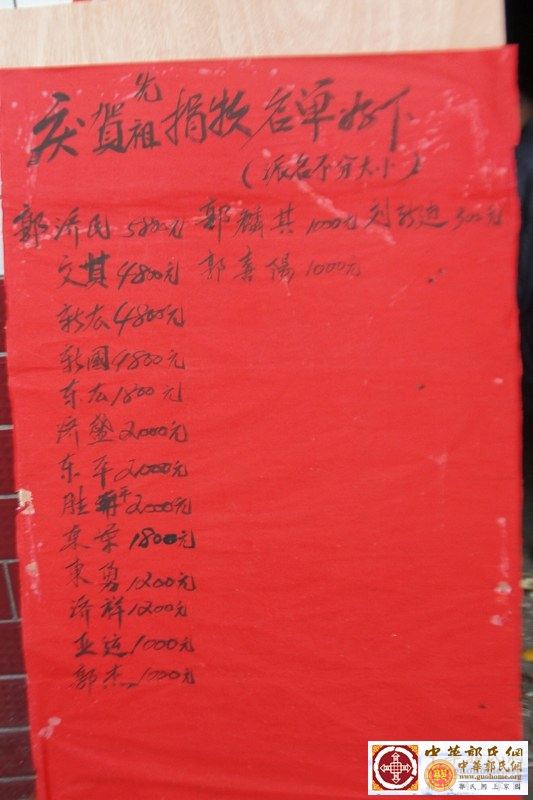 庆贺先祖捐款名单如下
(派名不分大小)
郭济民5800元 郭麟其1000元 刘新进300元
文其4800元 郭喜陽1000元
新宏4800元
新國4800元
东宏1800元
济盤2000元
东平2000元
胜平2000元
東荣1800元
東勇1200元
济祥1200元
亚运1000元
郭杰1000元
中華郭氏網
中華郭氏網
www.guohome.org